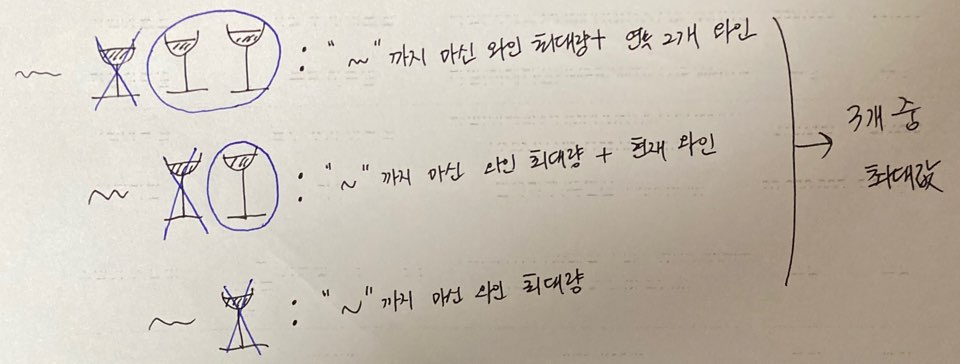 ~ : "~" 까지 마신 와인 최대량 + 연속 2개 와인
~ : "~" 까지 마신 와인 최대량 + 현재 와인
~ : "~" 까지 마신 와인 최대량
→ 3개 중
최대값